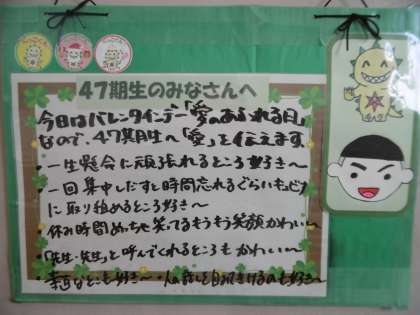 47期生のみなさんへ
今日はバレンタインデー「愛のあふれる日」
なので、47期生へ「愛」を伝えます。
・一生懸命に頑張れるところ好き～
・一回集中しだすと時間忘れるぐらい
に取り組めるところ好き～
休み時間めっちゃ笑ってるもうもう笑顔かわいい～
・「先生・先生」と呼んでくれるところもかわいい～
・素直なとこも好き～・人の話しを